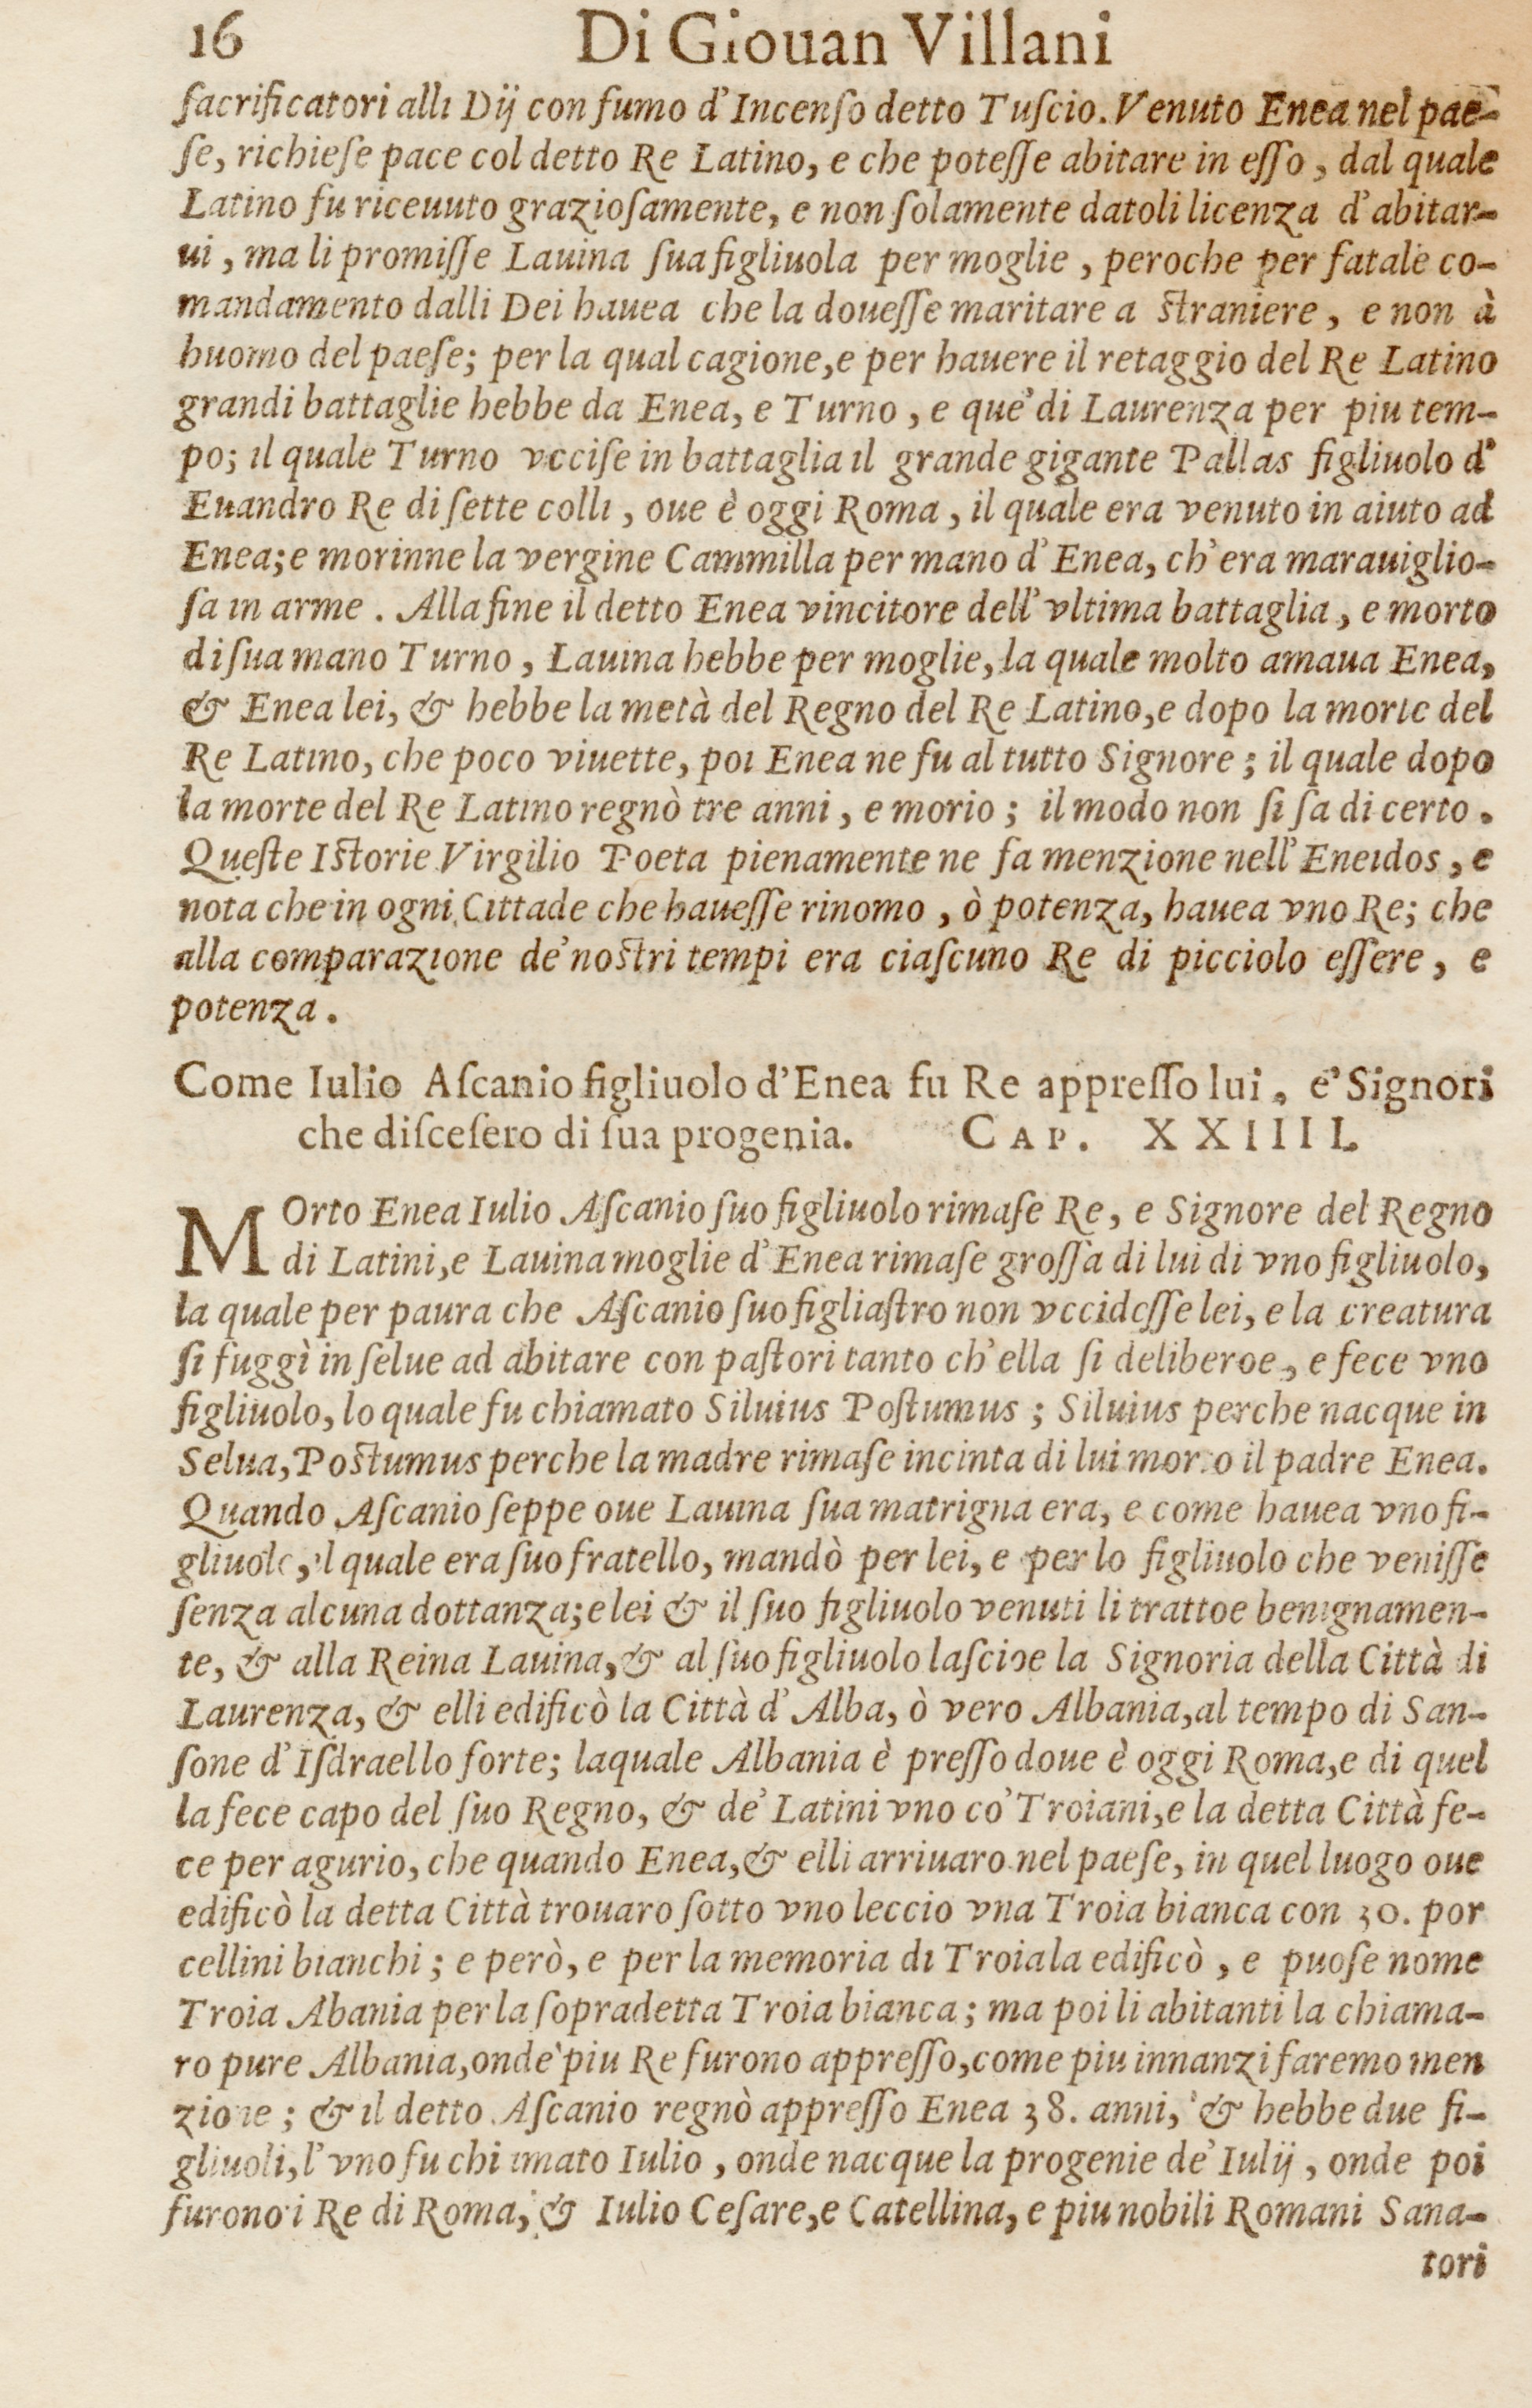 16 Di Giouan Villani
ſacrificatori alli Dij con fumo d'Incenſo detto Tuſcio. Venuto Enea nel pae-
ſe, richieſe pace col detto Re Latino, e che poteſſe abitare in eſſo, dal quale
Latino fu riceuuto grazioſamente, e non ſolamente datoli licenza d'abitar-
ui, ma li promiſſe Lauina ſua figliuola per moglie, peroche per fatale co-
mandamento dalli Dei hauea che la doueſſe maritare a straniere, e non à
huomo del paeſe; per la qual cagione, e per hauere il retaggio del Re Latino
grandi battaglie hebbe da Enea, e Turno, e que' di Laurenza per piu tem-
po; il quale Turno vcciſe in battaglia il grande gigante Pallas figliuolo d'
Euandro Re di ſette colli, oue è oggi Roma, il quale era venuto in aiuto ad
Enea; e morinne la vergine Cammilla per mano d'Enea, ch'era marauiglio-
ſa in arme. Alla fine il detto Enea vincitore dell'vltima battaglia, e morto
di ſua mano Turno, Lauina hebbe per moglie, la quale molto amaua Enea,
& Enea lei, & hebbe la metà del Regno del Re Latino, e dopo la morte del
Re Latino, che poco viuette, poi Enea ne fu al tutto Signore; il quale dopo
la morte del Re Latino regnò tre anni, e morio; il modo non ſi ſa di certo.
Queſte Istorie Virgilio Poeta pienamente ne fa menzione nell'Eneidos, e
nota che in ogni Cittade che haueſſe rinomo, ò potenza, hauea vno Re; che
alla comparazione de' nostri tempi era ciaſcuno Re di picciolo eſſere, e
potenza.
Come Iulio Aſcanio figliuolo d'Enea fu Re appreſſo lui, e' Signori
che diſceſero di ſua progenia. CAP. XXIIII.
MOrto Enea Iulio Aſcanio ſuo figliuolo rimaſe Re, e Signore del Regno
di Latini, e Lauina moglie d'Enea rimaſe groſſa di lui di vno figliuolo,
la quale per paura che Aſcanio ſuo figliaſtro non vccideſſe lei, e la creatura
ſi fuggì in ſelue ad abitare con paſtori tanto ch'ella ſi deliberoe, e fece vno
figliuolo, lo quale fu chiamato Siluius Poſtumus; Siluius perche nacque in
Selua, Postumus perche la madre rimaſe incinta di lui morto il padre Enea.
Quando Aſcanio ſeppe oue Lauina ſua matrigna era, e come hauea vno fi-
gliuolo, il quale era ſuo fratello, mandò per lei, e per lo figliuolo che veniſſe
ſenza alcuna dottanza; e lei & il ſuo figliuolo venuti li trattoe benignamen-
te, & alla Reina Lauina, & al ſuo figliuolo laſcioe la Signoria della Città di
Laurenza, & elli edificò la Città d'Alba, ò vero Albania, al tempo di San-
ſone d'Iſdraello forte; laquale Albania è preſſo doue è oggi Roma, e di quel
la fece capo del ſuo Regno, & de' Latini vno co' Troiani, e la detta Città fe-
ce per agurio, che quando Enea, & elli arriuaro nel paeſe, in quel luogo oue
edificò la detta Città trouaro ſotto vno leccio vna Troia bianca con 30. por
cellini bianchi; e però, e per la memoria di Troia la edificò, e puoſe nome
Troia Abania per la ſopradetta Troia bianca; ma poi li abitanti la chiama-
ro pure Albania, onde piu Re furono appreſſo, come piu innanzi faremo men
zione; & il detto Aſcanio regnò appreſſo Enea 38. anni, & hebbe due fi-
gliuoli, l'vno fu chiamato Iulio, onde nacque la progenie de' Iulij, onde poi
furono i Re di Roma, & Iulio Ceſare, e Catellina, e piu nobili Romani Sana-
tori